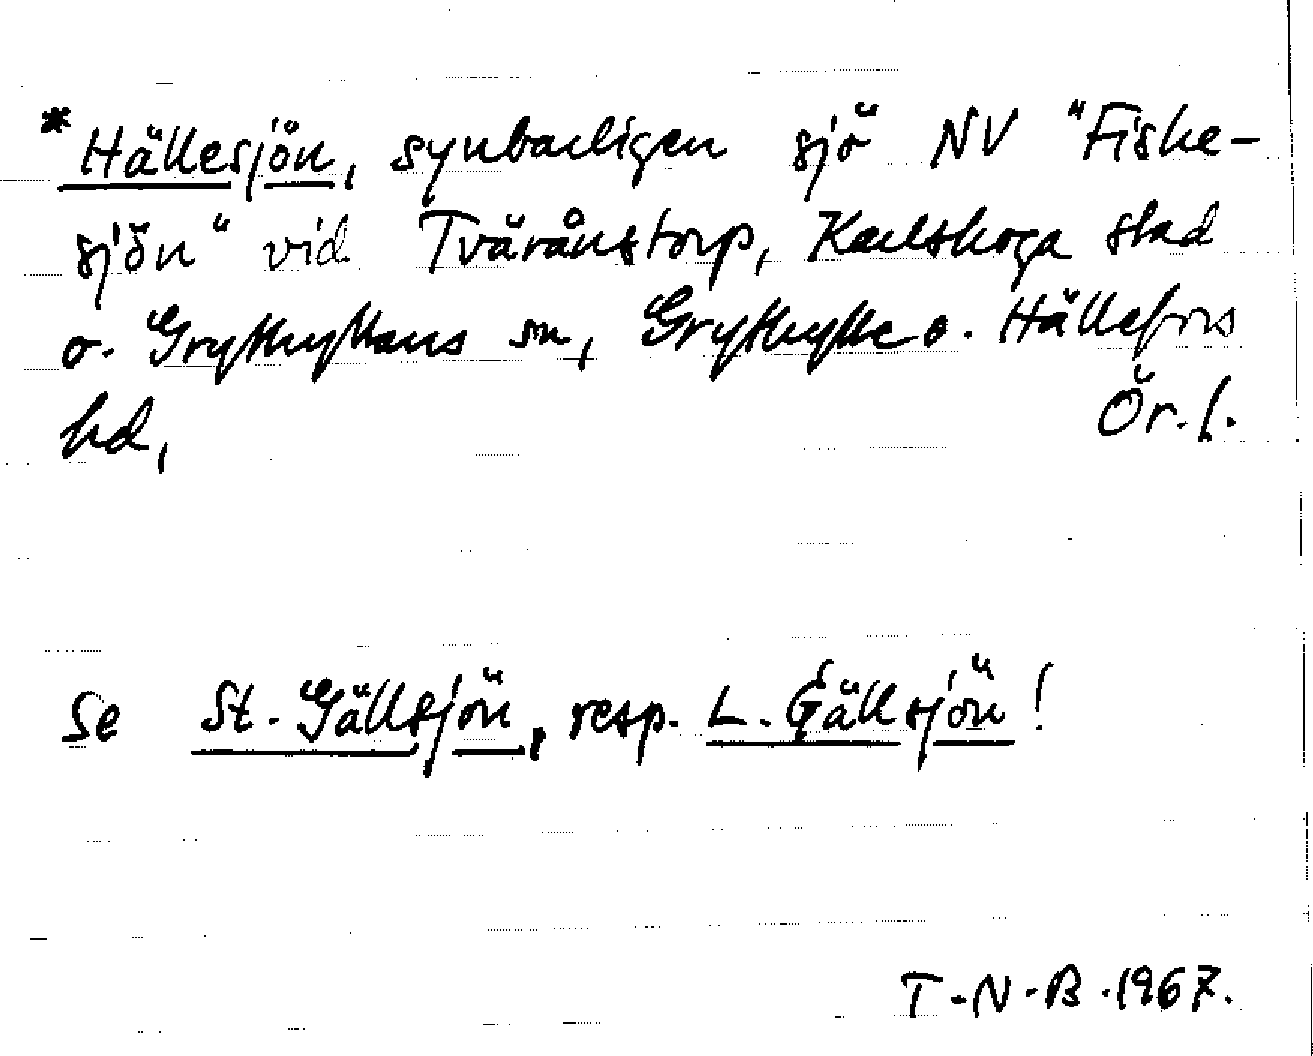 *Hällesjön, synbarligen sjö NV "Fiske-
sjön" vid Tvärånstorp, Karlskoga stad
o. Grythyttans sn, Grythytte o. Hällefors
hd, Ör. l.
Se St. Gällsjön, resp. L. Gällsjön!
T-N-B. 1967.